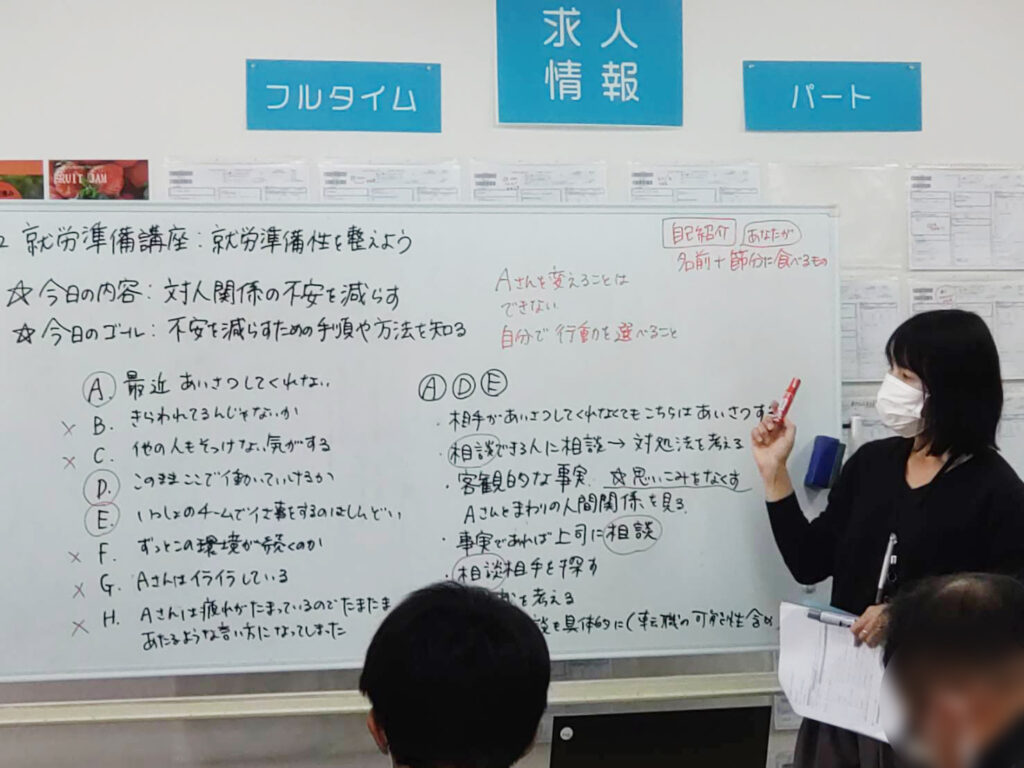 求人
情報
フルタイム
パート
FRUIT JAM
就労準備講座：就労準備性を整えよう
☆今日の内容：対人関係の不安を減らす
☆今日のゴール：不安を減らすための手順や方法を知る
自己紹介 あなたが
名前＋節分に食べるもの
Aさんを変えることは
できない
自分で行動を選べること
A. 最近あいさつしてくれない
× B. きらわれてるんじゃないか
× C. 他の人もそっけない気がする
D. このままここで働いていけるか
E. いっしょのチームで仕事をするのはしんどい
× F. ずっとこの環境が続くのか
× G. Aさんはイライラしている
× H. Aさんは疲れがたまっているのでたまたま
あたるような言い方になってしまった
A D E
・相手があいさつしてくれなくてもこちらはあいさつする
・相談できる人に相談→対処法を考える
・客観的な事実 ☆思いこみをなくす
Aさんとまわりの人間関係を見る
・事実であれば上司に相談
・相談相手を探す
を考える
談を具体的に(転職の可能性含め